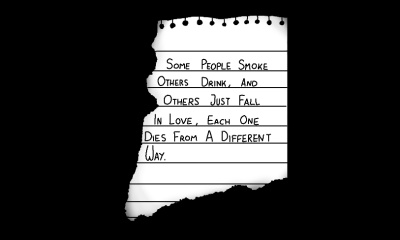 Some People Smoke
Others Drink, And
Others Just Fall
In Love, Each One
Dies From A Different
Way.